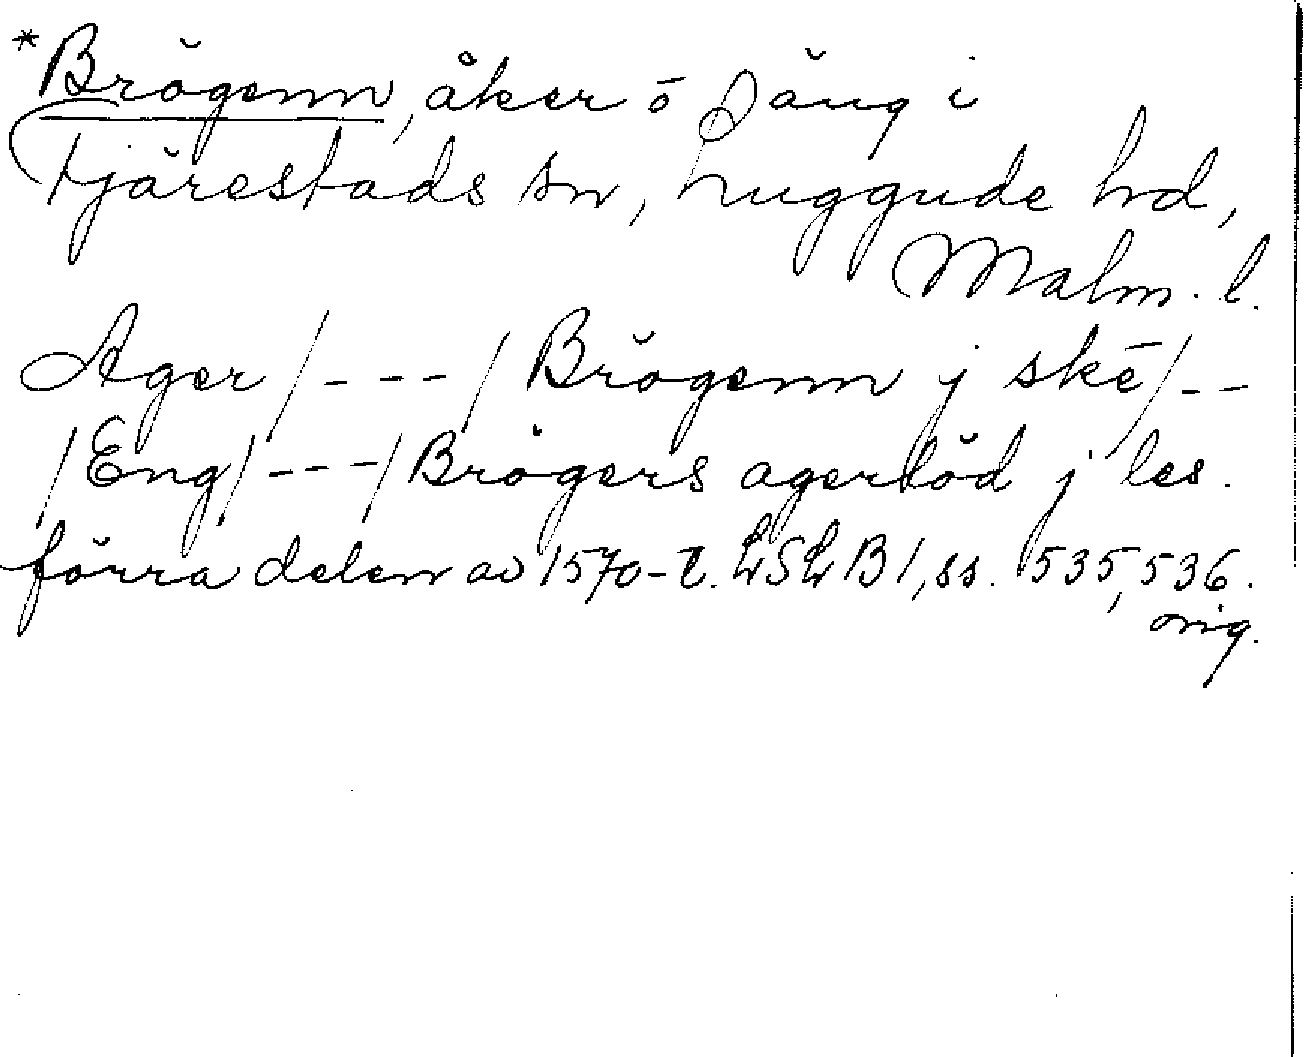 *Brögenn, åker o äng i
Kjärestads sn, Luggude hd,
Malm. l.
Ager /---/ Brögenn j skē /--
/Eng/ ---/ Brögers agerlöd j les.
förra delen av 1570-t. LSLB1, ss. 535, 536.
orig.